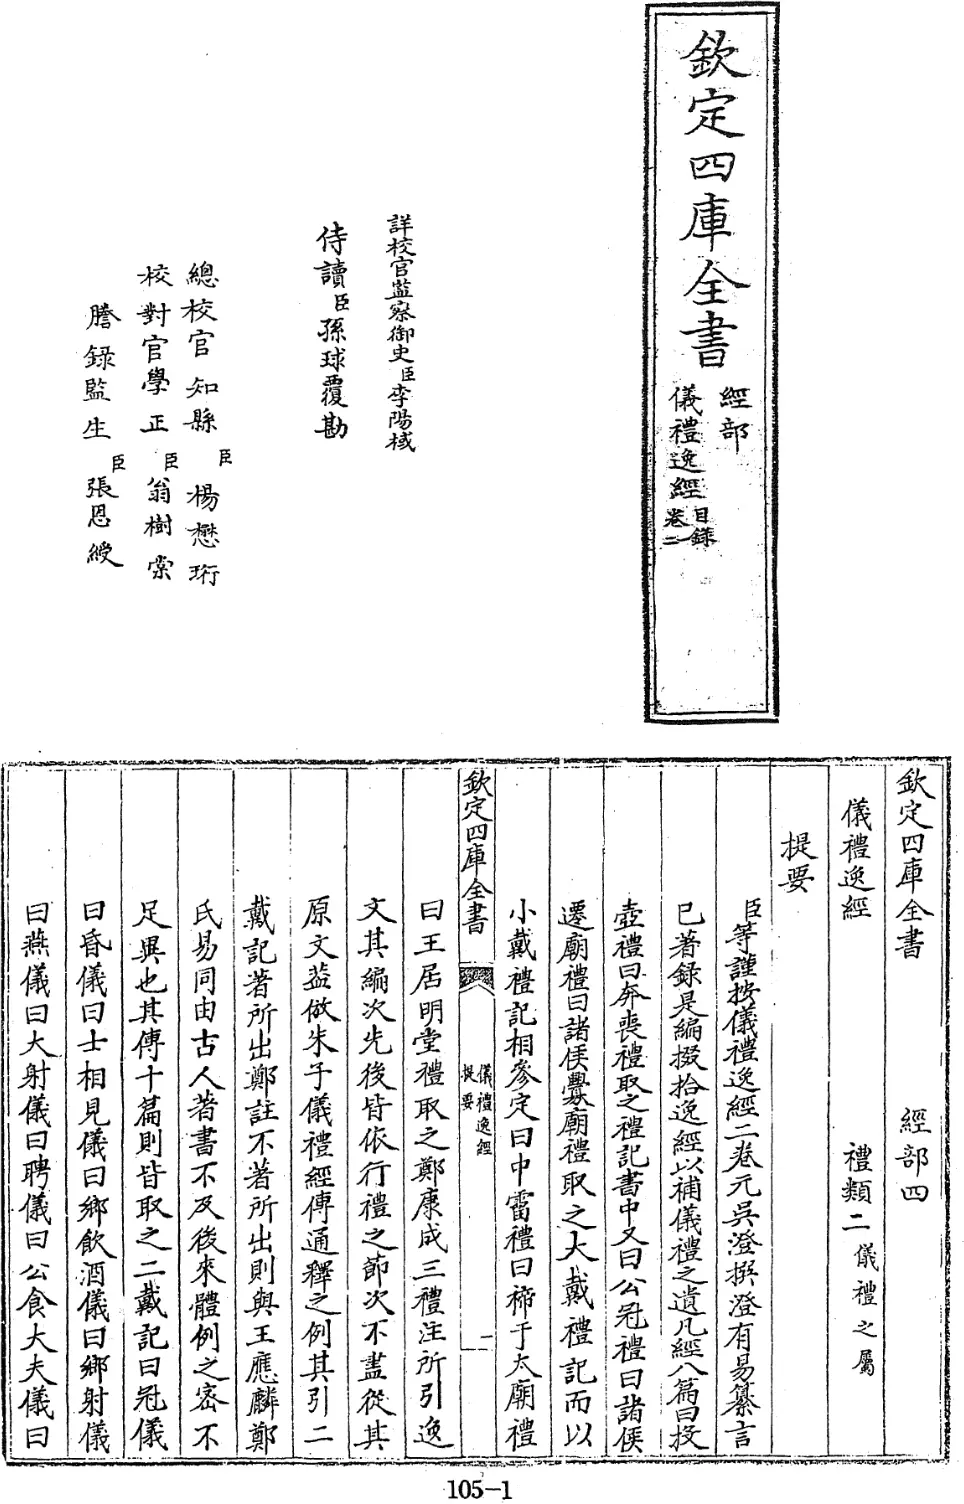 欽定四庫全書
經部
儀禮逸經
目錄
卷二
詳校官監察御史臣李陽棫
侍讀臣孫球覆勘
總校官知縣臣楊懋珩
校對官學正臣翁樹棠
謄錄監生臣張恩綬
欽定四庫全書 經部四
儀禮逸經 禮類二儀禮之屬
提要
臣等謹按儀禮逸經二卷元吳澄撰澄有易纂言
已著錄是編掇拾逸經以補儀禮之遺凡經八篇曰投
壺禮曰奔喪禮取之禮記書中又曰公冠禮曰諸侯
遷廟禮曰諸侯釁廟禮取之大戴禮記而以
小戴禮記相參定曰中霤禮曰禘于太廟禮
欽定四庫全書 儀禮逸經
提要 一
曰王居明堂禮取之鄭康成三禮注所引逸
文其編次先後皆依行禮之節次不盡從其
原文葢倣朱子儀禮經傳通釋之例其引二
戴記著所出鄭註不著所出則與王應麟鄭
氏易同由古人著書不及後來體例之密不
足異也其傳十篇則皆取之二戴記曰冠儀
曰昏儀曰士相見儀曰鄉飲酒儀曰鄉射儀
曰燕儀曰大射儀曰聘儀曰公食大夫儀曰
105-1